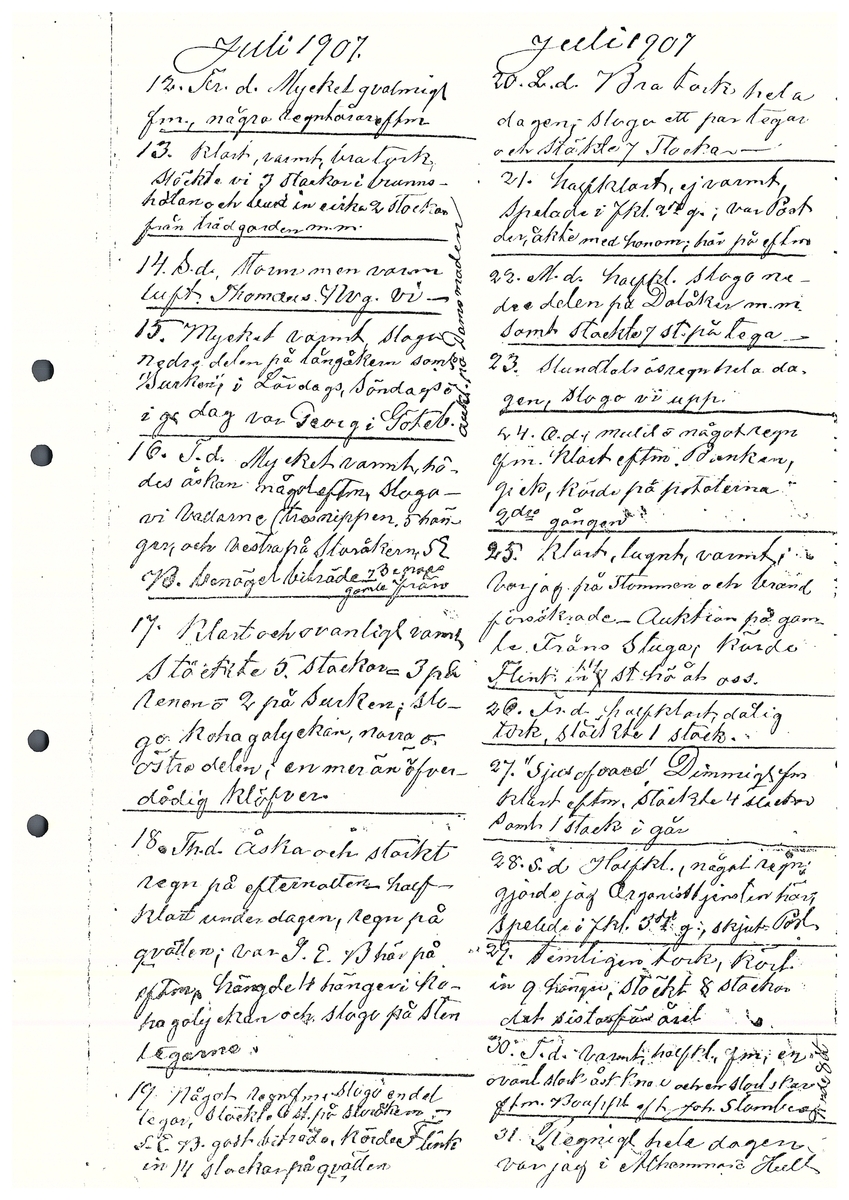 Juli 1907.
12. Fr. d. Mycket qvalmigt
fm., några regntårar eftm
13. Klart, varmt, bra tork,
stöckte vi 7 stackar i brunns-
hålan och in cirka 2 stackar
från trädgården m.m.
14. S.d., storm men varm
luft. Thomaus. Hvg. vi —
15. Mycket varmt, slogo
nedre delen på långåkern samt
"Surken", i Lördags, Söndags o
i gs dag var Georg i Göteb.
aukt. på Damsmaden
16. T.d. Mycket varmt, hö-
des åskan något eftm, slogo
vi vadarne (trosnippen, 5 hän-
ger, och vestra på Storåkern, S E
B. benäget biträde
gamle Frans
17. Klart och ovanligt varmt
stöckte 5 stackar = 3 på
renen o 2 på Surken; slo-
go Kohagalyckan, norra o.
östra delen; en mer än öfver-
dådig klöfver.
18. Th.d. Åska och starkt
regn på efternatten half-
klart under dagen, regn på
qvällen; var J. E. B här på
eftm, hängde 4 hänger i Ko-
hagalyckan och slogo på Sten
tegarne.
19. Något regn fm., slogo en del
tegar, stöckte st. på storåkern
S. E. B. gott biträde, körde Flink
in 14 stackar på qvällen
Juli 1907
20. L.d. Bra tork hela
dagen; slogo ett par tegar
och stöckte 7 stackar —
21. halfklart, ej varmt,
spelade i fkl. 2dra g.; var Post
der, åkte med honom; här på eftm
22. M.d. halfkl. slogo ne-
dre delen på Dalåker m.m.
samt stöckte 7 st. på tega —
23. Stundtals ösregn hela da-
gen, slogo vi upp.
24. O.d., mulet o något regn
fm. klart eftm. Blenkan,
gick, körde på potaterna
2dra gången
25. Klart, lugnt, varmt;
var jag på Stommen och brand
försäkrade — Auktion på gam-
le Fräns Stuga; körde
Flink in st. hö åt oss.
26. Fr.d. halfklart, dålig
tork, stöckte 1 stack.
27. "Sjusofvare" Dimmigt fm
klart eftm. stöckte 4 stackar
samt 1 stack i går
28. S.d Halfkl., något regn;
gjorde jag Organisttjensten här,
spelade i fkl. 3dje g., skjut. Post
29. Temligen tork, kört
in 9 hänger, stöckt 8 stackar
det sista för året
30. T.d. varmt, halfkl. fm; en
ovanl. stark åskknall och en stod skur
eftm. Joh. Stomberg
31. Regnigt hela dagen
var jag i Alhammars Hult